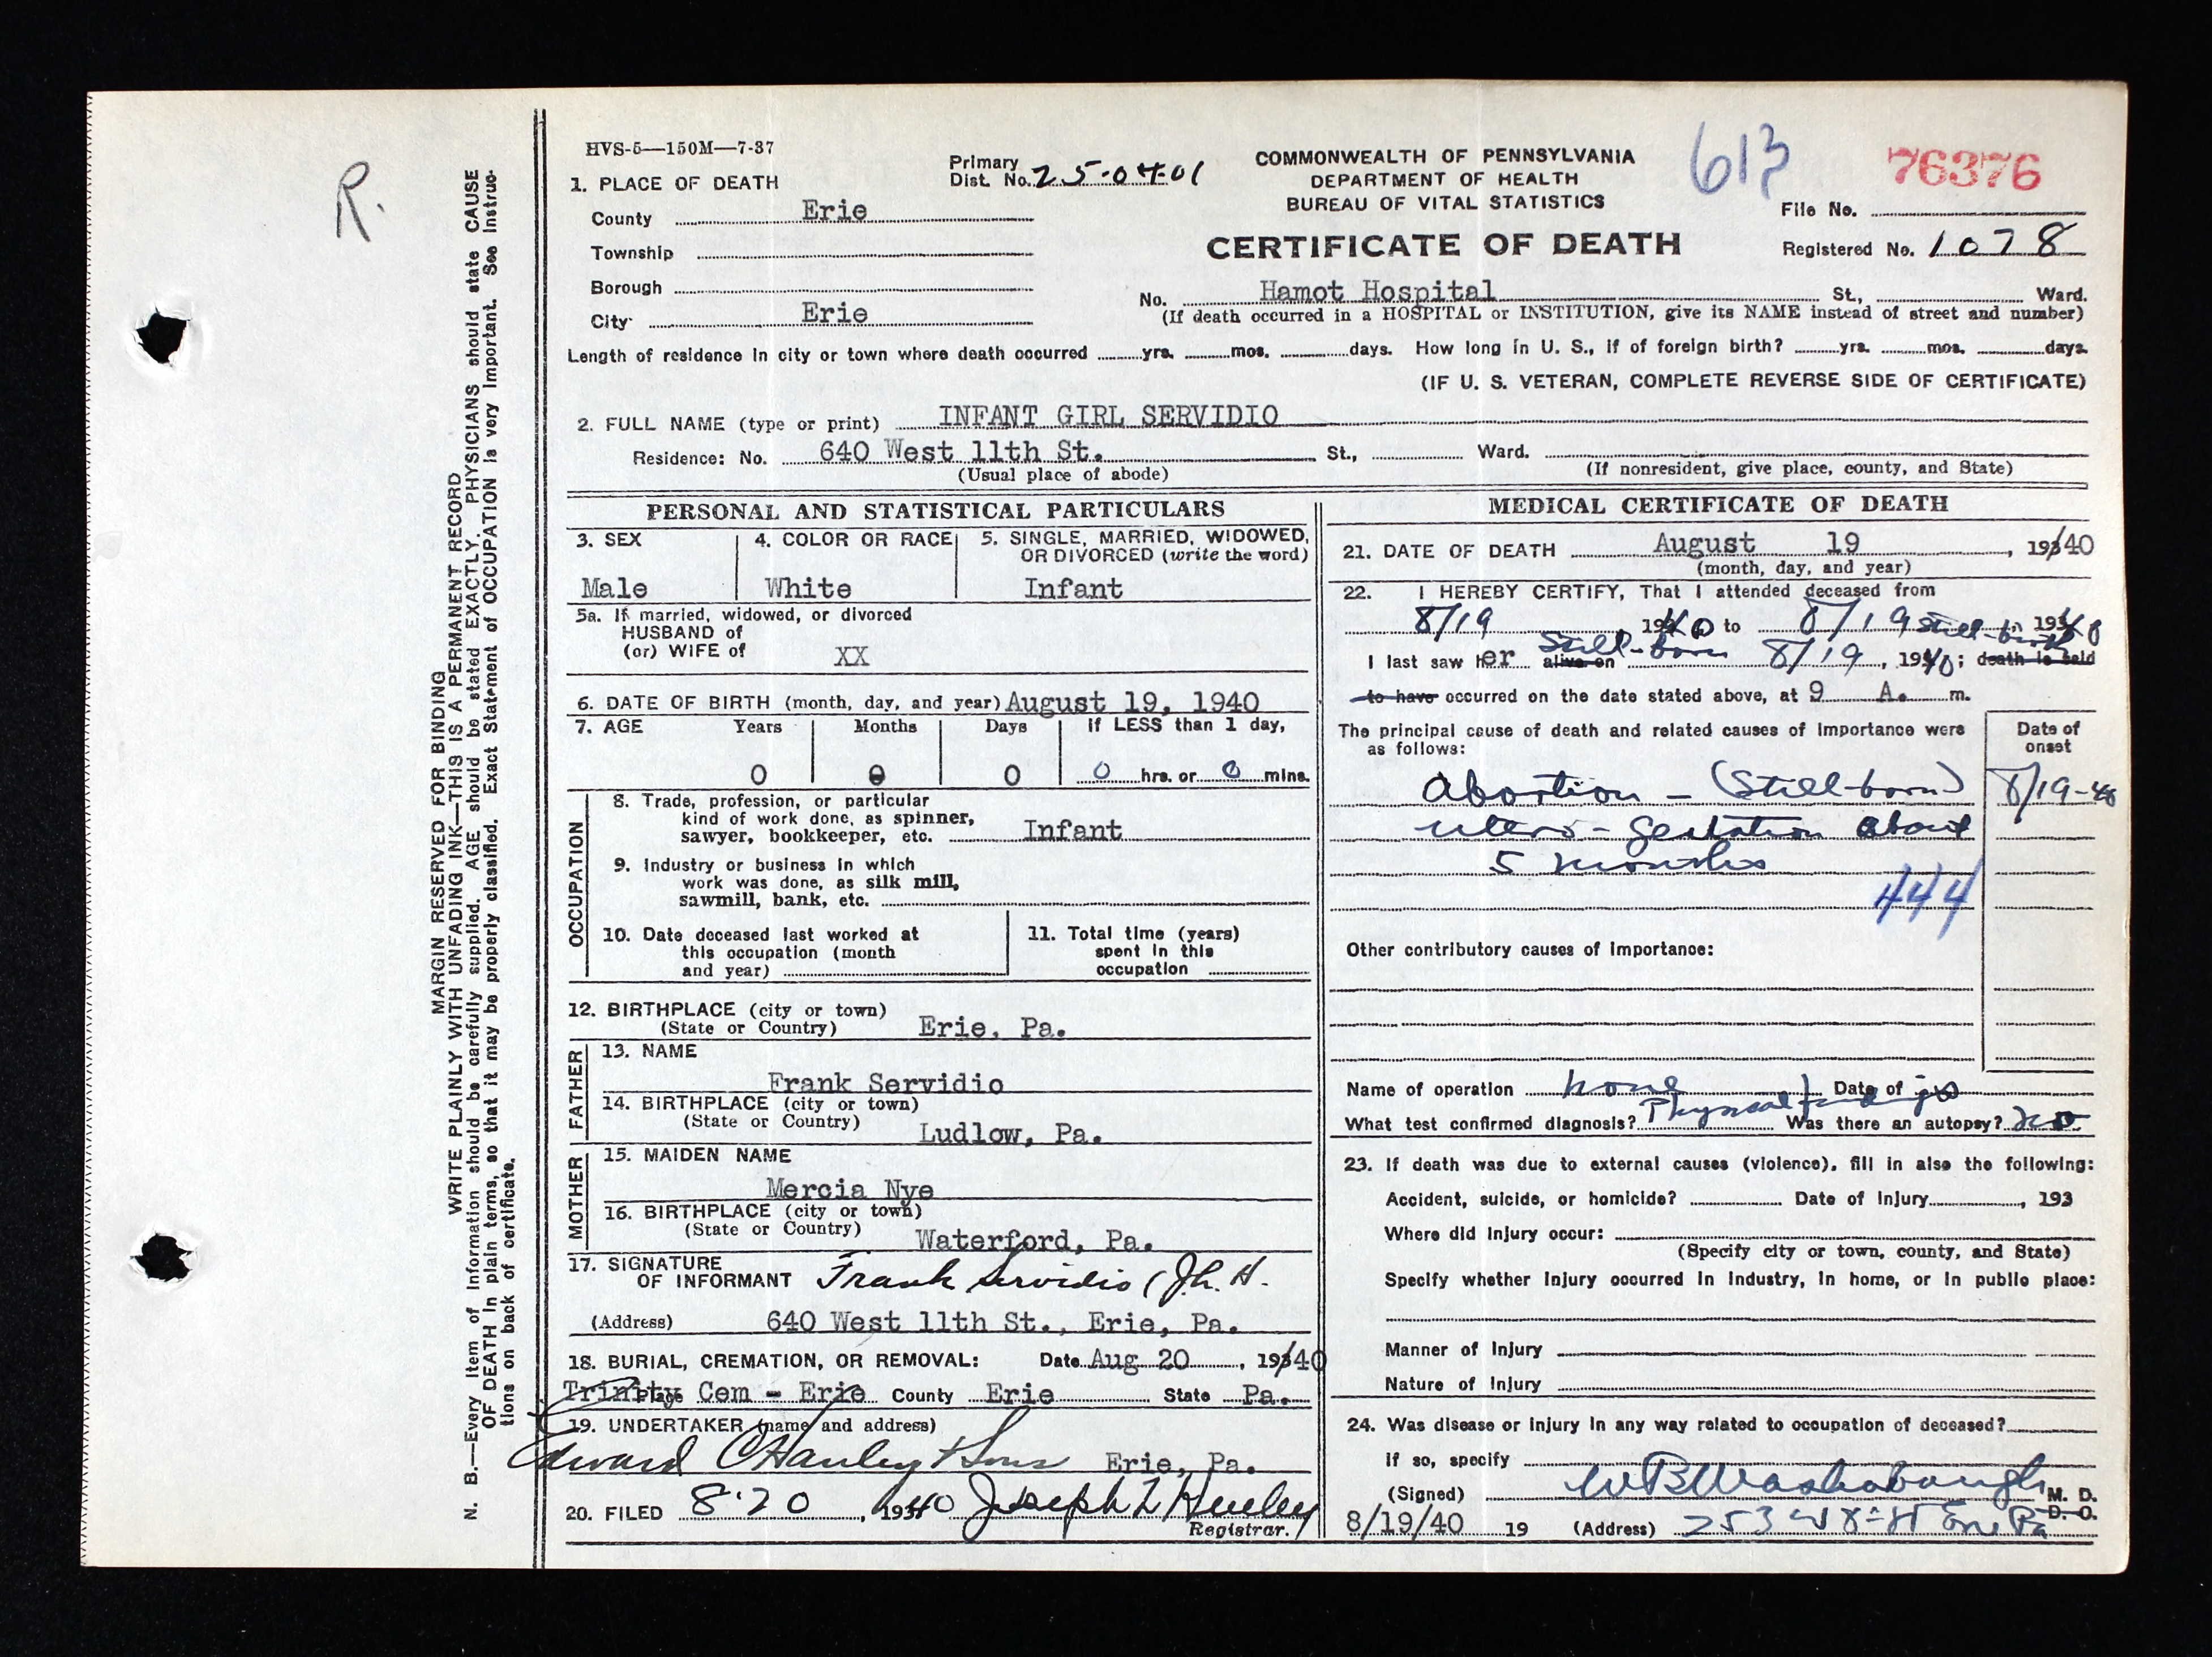 R.
MARGIN RESERVED FOR BINDING
WRITE PLAINLY WITH UNFADING INK—THIS IS A PERMANENT RECORD
N. B.—Every item of information should be carefully supplied. AGE should be stated EXACTLY. PHYSICIANS should state CAUSE
OF DEATH in plain terms, so that it may be properly classified. Exact Statement of OCCUPATION is very important. See instruc-
tions on back of certificate.
HVS-5—150M—7-37
Primary
Dist. No. 25-0401
COMMONWEALTH OF PENNSYLVANIA
DEPARTMENT OF HEALTH
BUREAU OF VITAL STATISTICS
CERTIFICATE OF DEATH
613
76376
File No.
Registered No. 1078
1. PLACE OF DEATH
County Erie
Township
Borough
City Erie
No. Hamot Hospital St., Ward.
(If death occurred in a HOSPITAL or INSTITUTION, give its NAME instead of street and number)
Length of residence in city or town where death occurred yrs. mos. days. How long in U. S., if of foreign birth? yrs. mos. days.
(IF U. S. VETERAN, COMPLETE REVERSE SIDE OF CERTIFICATE)
2. FULL NAME (type or print) INFANT GIRL SERVIDIO
Residence: No. 640 West 11th St. St., Ward.
(Usual place of abode) (If nonresident, give place, county, and State)
PERSONAL AND STATISTICAL PARTICULARS
3. SEX 4. COLOR OR RACE 5. SINGLE, MARRIED, WIDOWED,
OR DIVORCED (write the word)
Male White Infant
5a. If married, widowed, or divorced
HUSBAND of
(or) WIFE of XX
6. DATE OF BIRTH (month, day, and year) August 19, 1940
7. AGE Years Months Days If LESS than 1 day,
0 0 0 0 hrs. or 0 mins.
OCCUPATION
8. Trade, profession, or particular
kind of work done, as spinner,
sawyer, bookkeeper, etc. Infant
9. Industry or business in which
work was done, as silk mill,
sawmill, bank, etc.
10. Date deceased last worked at
this occupation (month
and year)
11. Total time (years)
spent in this
occupation
12. BIRTHPLACE (city or town)
(State or Country) Erie, Pa.
FATHER
13. NAME
Frank Servidio
14. BIRTHPLACE (city or town)
(State or Country) Ludlow, Pa.
MOTHER
15. MAIDEN NAME
Mercia Nye
16. BIRTHPLACE (city or town)
(State or Country) Waterford, Pa.
17. SIGNATURE
OF INFORMANT Frank Servidio (J.h. H.
(Address) 640 West 11th St., Erie, Pa.
18. BURIAL, CREMATION, OR REMOVAL: Date Aug 20, 193/40
Place Trinity Cem - Erie County Erie State Pa.
19. UNDERTAKER (name and address)
Edward C Hanley & Sons Erie, Pa.
20. FILED 8-20, 19340 Joseph L Hurley
Registrar.
MEDICAL CERTIFICATE OF DEATH
21. DATE OF DEATH August 19, 193/40
(month, day, and year)
22. I HEREBY CERTIFY, That I attended deceased from
8/19, 1940 to 8/19 still-birth, 1940
I last saw her alive on Still-born 8/19, 1940; death is said
to have occurred on the date stated above, at 9 A. m.
The principal cause of death and related causes of importance were
as follows:
Date of
onset
Abortion - (Still-born) 8/19-40
utero-gestation about
5 months
444
Other contributory causes of importance:
Name of operation none Date of
What test confirmed diagnosis? Physical findings Was there an autopsy? no
23. If death was due to external causes (violence), fill in also the following:
Accident, suicide, or homicide? Date of injury, 193
Where did injury occur:
(Specify city or town, county, and State)
Specify whether injury occurred in industry, in home, or in public place:
Manner of Injury
Nature of Injury
24. Was disease or injury in any way related to occupation of deceased?
If so, specify
(Signed) W B Washabaugh M. D.
D. O.
8/19/40 19 (Address) 253 W 8th St Erie Pa